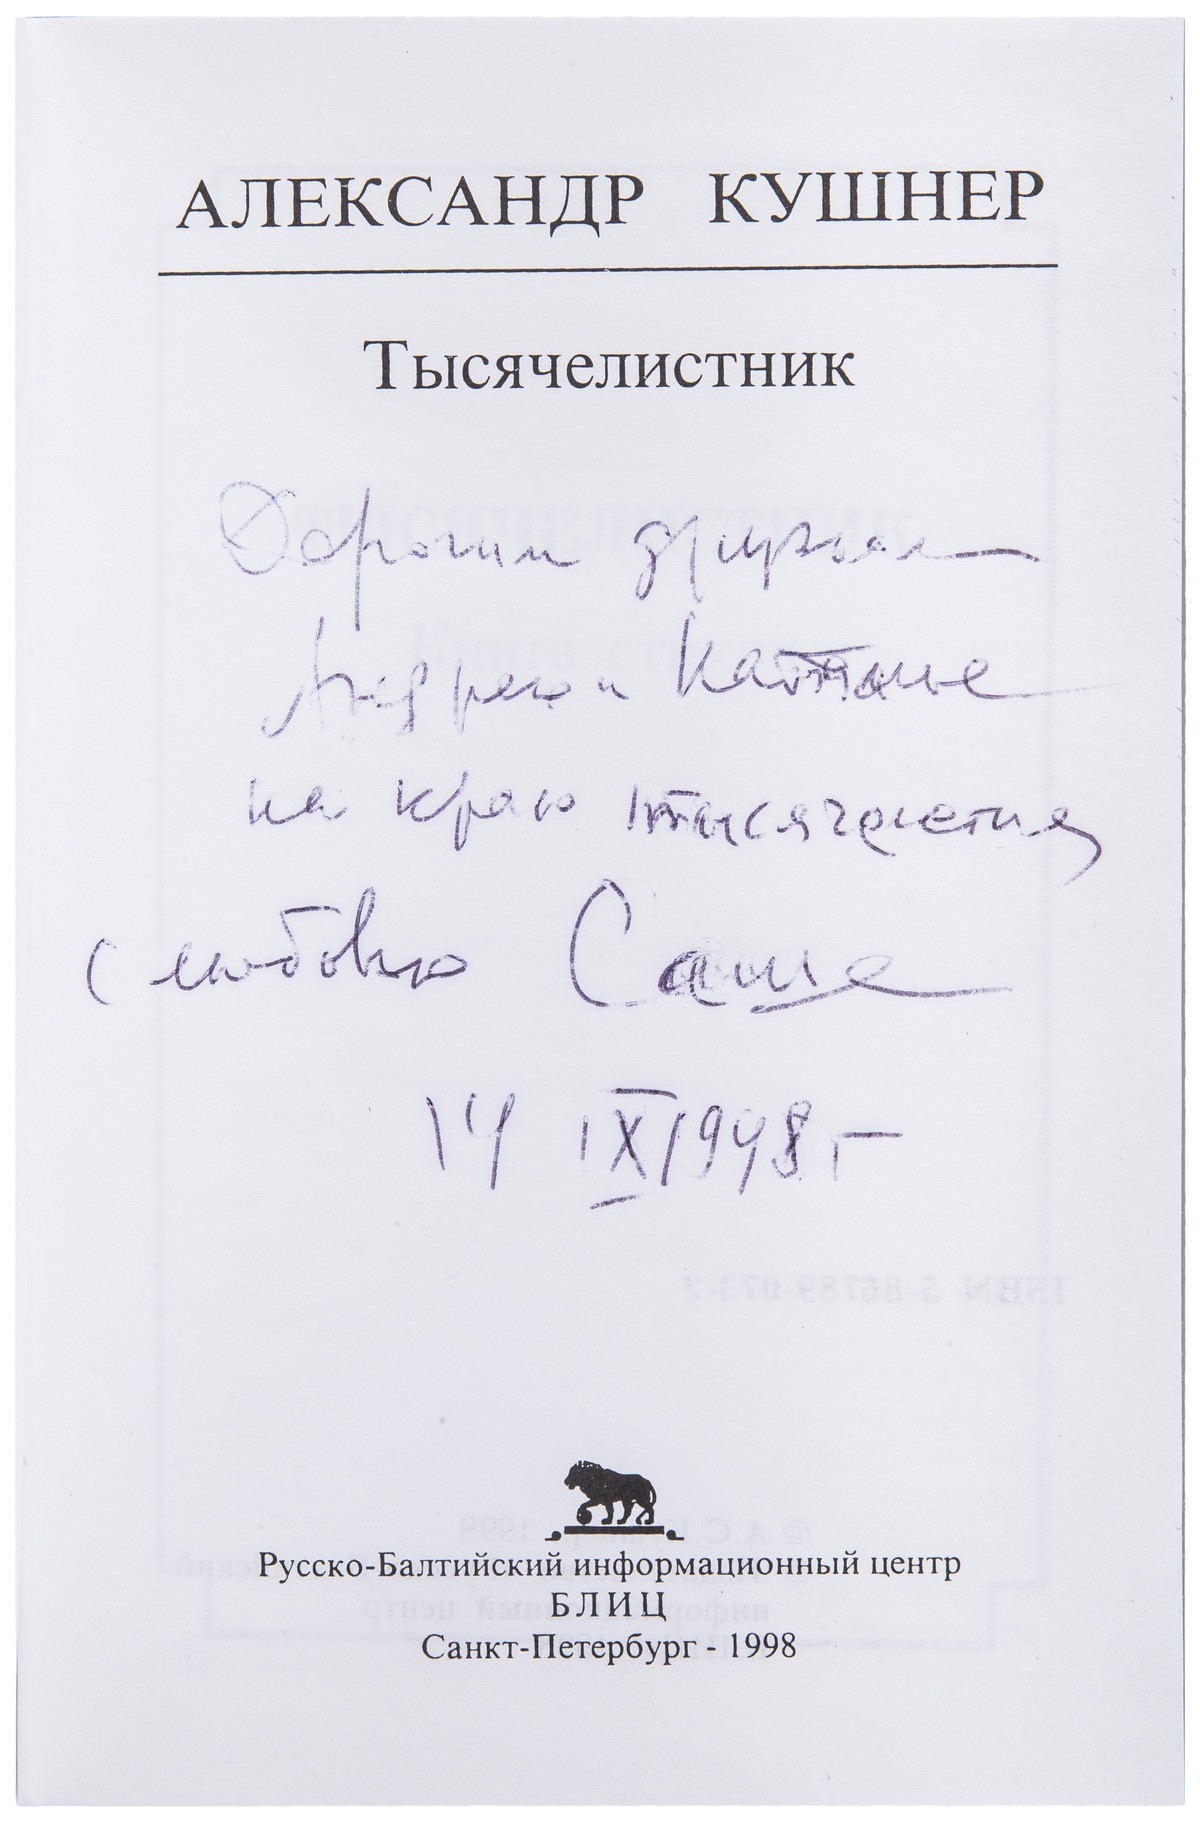 АЛЕКСАНДР КУШНЕР
Тысячелистник
Дорогим друзьям
Андрею и Наталье
на краю тысячелетия
с любовью Саша
14 IX 1998 г
ISBN 5-86789-073-2
Русско-Балтийский информационный центр
БЛИЦ
Санкт-Петербург - 1998